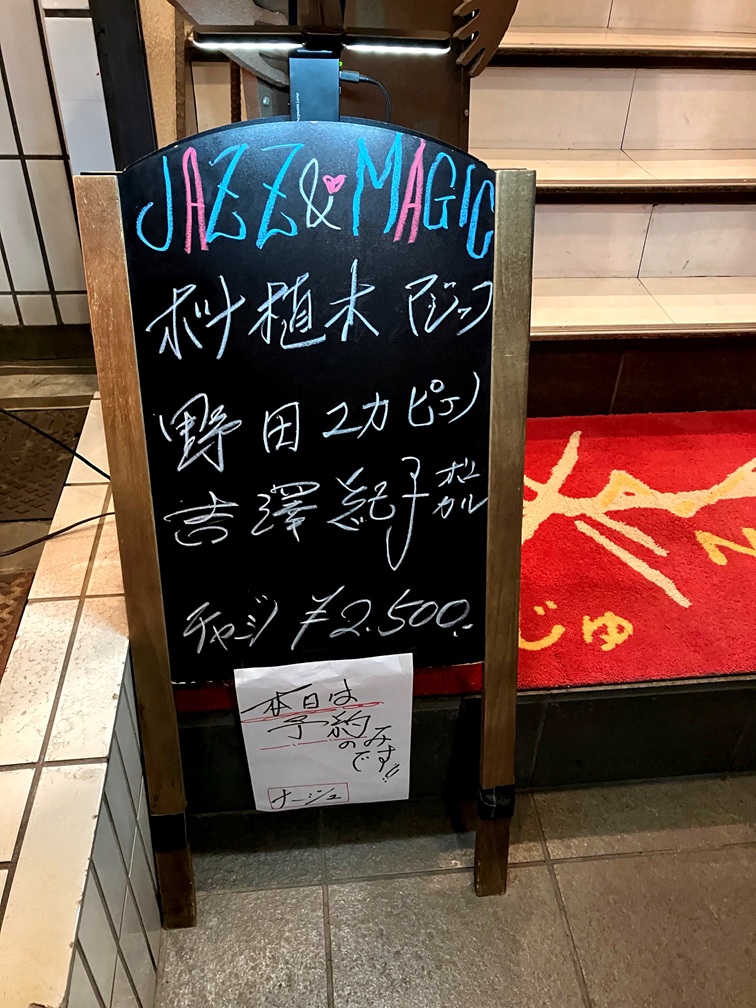 JAZZ & MAGIC
ボナ植木 マジック
野田ユカ ピアノ
吉澤紀子 ボーカル
チャージ ¥2.500
じゅ
本日は
予約
のみ
です!!
ナージュ